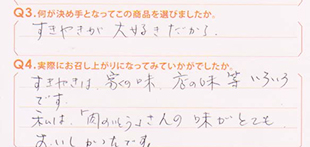 Q3.何が決め手となってこの商品を選びましたか。
すきやきが大好きだから。
Q4.実際にお召し上がりになってみていかがでしたか。
すきやきは、家の味、店の味 等 いろいろ
です。
私は、「肉のいとう」さんの 味がとても
おいしかったです。